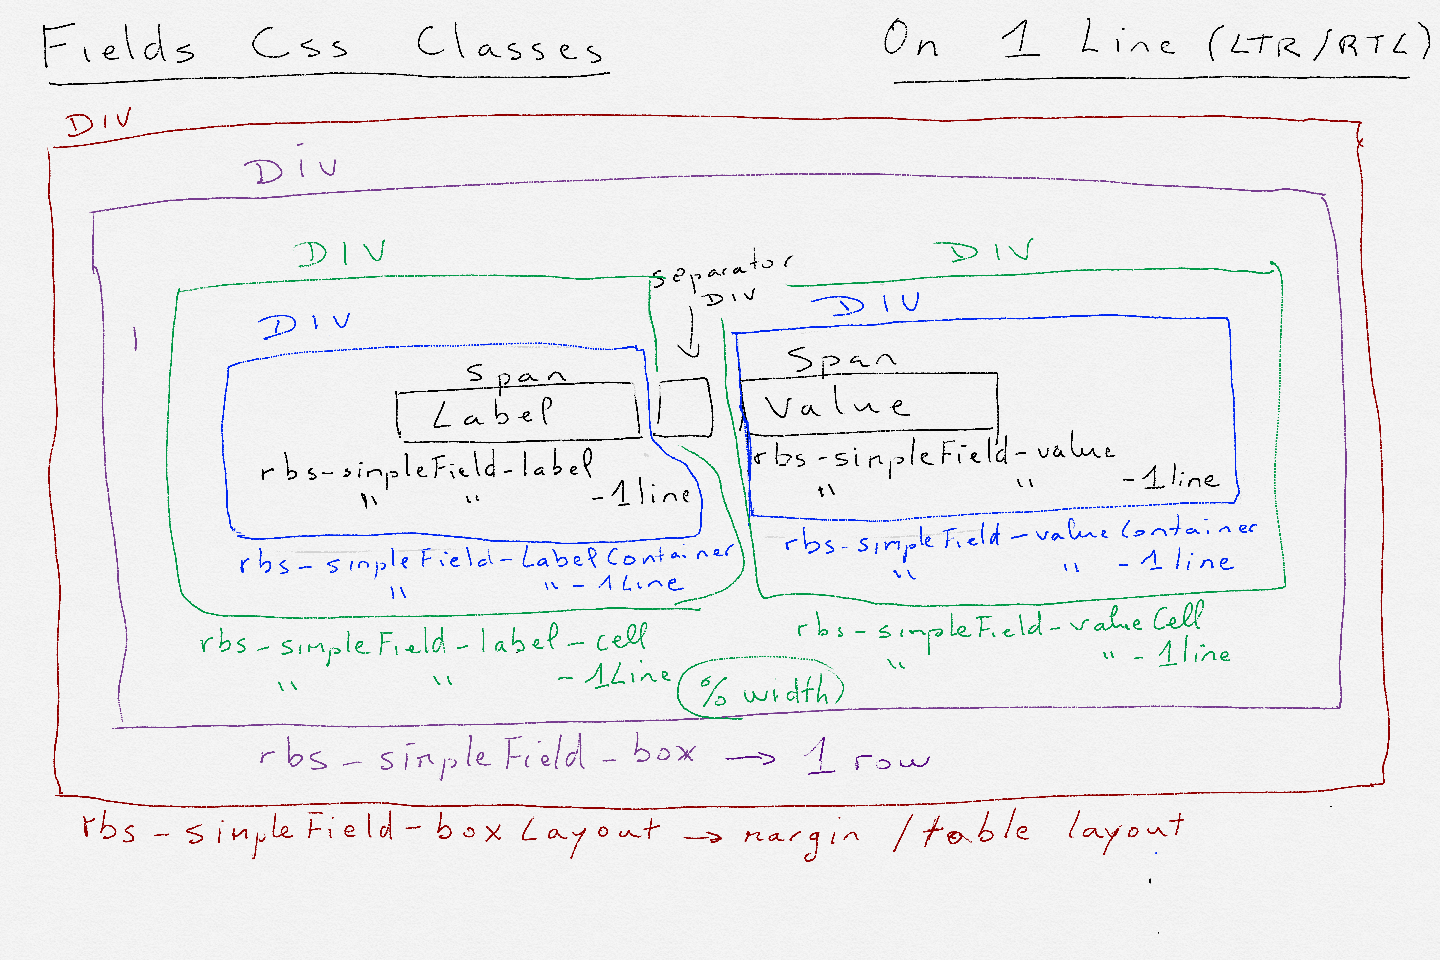 Fields Css Classes
On 1 Line (LTR/RTL)
DIV
Div
DIV
separator
DIV
DIV
DIV
DIV
Span
Label
Span
Value
rbs-simpleField-label
" " -1line
rbs-simpleField-value
" " -1line
rbs-simpleField-LabelContainer
" " -1Line
rbs-simpleField-valueContainer
" " -1line
rbs-simpleField-label-cell
" " -1Line
rbs-simpleField-valueCell
" " -1line
% width
rbs-simpleField-box → 1 row
rbs-simpleField-boxLayout → margin / table layout